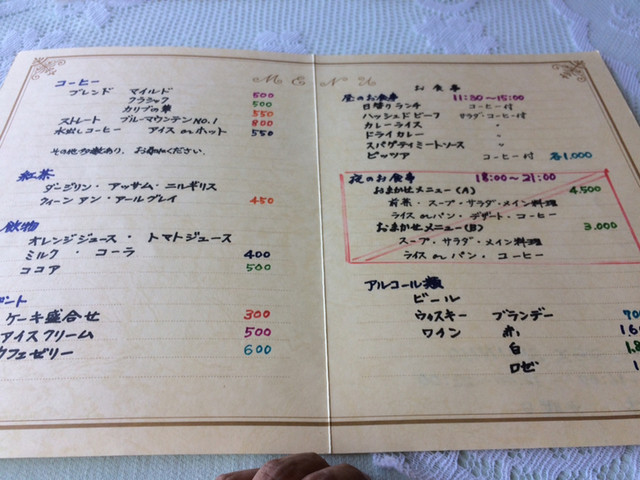 MENU
コーヒー
ブレンド マイルド 500
クラシック 500
カリブの華 550
ストレート ブルーマウンテンNO.1 800
水出しコーヒー アイス or ホット 550
その他多数あり、お尋ねください。
紅茶
ダージリン・アッサム・ニルギリス
ウィーン アン・アールグレイ 450
飲物
オレンジジュース・トマトジュース
ミルク・コーラ 400
ココア 500
ケーキ盛合せ 300
アイスクリーム 500
フェゼリー 600
お食事
昼のお食事 11:30〜15:00
日替ランチ コーヒー付
ハッシュドビーフ サラダ・コーヒー付
カレーライス 〃
ドライカレー 〃
スパゲティミートソース 〃
ピッツア コーヒー付 各1.000
夜のお食事 18:00〜21:00
おまかせメニュー(A) 4.500
前菜・スープ・サラダ・メイン料理
ライス or パン・デザート・コーヒー
おまかせメニュー(B) 3.000
スープ・サラダ・メイン料理
ライス or パン・コーヒー
アルコール類
ビール
ウィスキー ブランデー
ワイン 赤
白
ロゼ